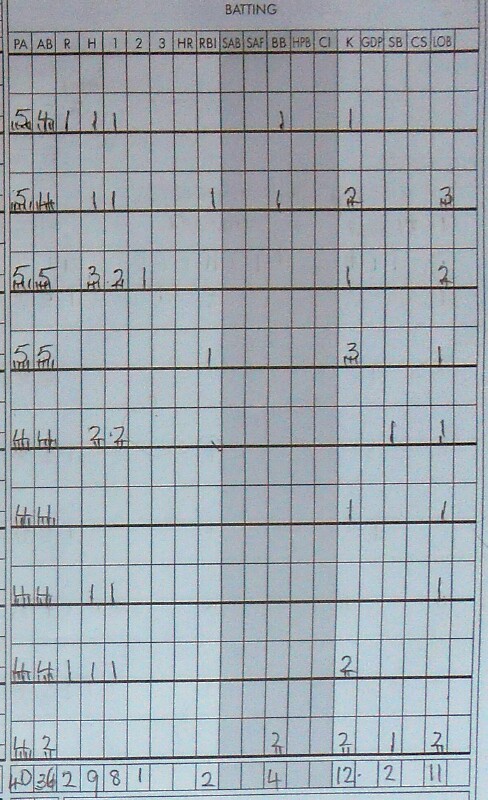 BATTING
PA AB R H 1 2 3 HR RBI SAB SAF BB HPB CI K GDP SB CS LOB
5 4 1 1 1 1 1
5 4 1 1 1 1 2 3
5 5 3 2 1 1 2
5 5 1 3 1
4 4 2 2 1 1
4 4 1 1
4 4 1 1 1
4 4 1 1 1 2
4 2 2 2 1 2
40 36 2 9 8 1 2 4 12 2 11